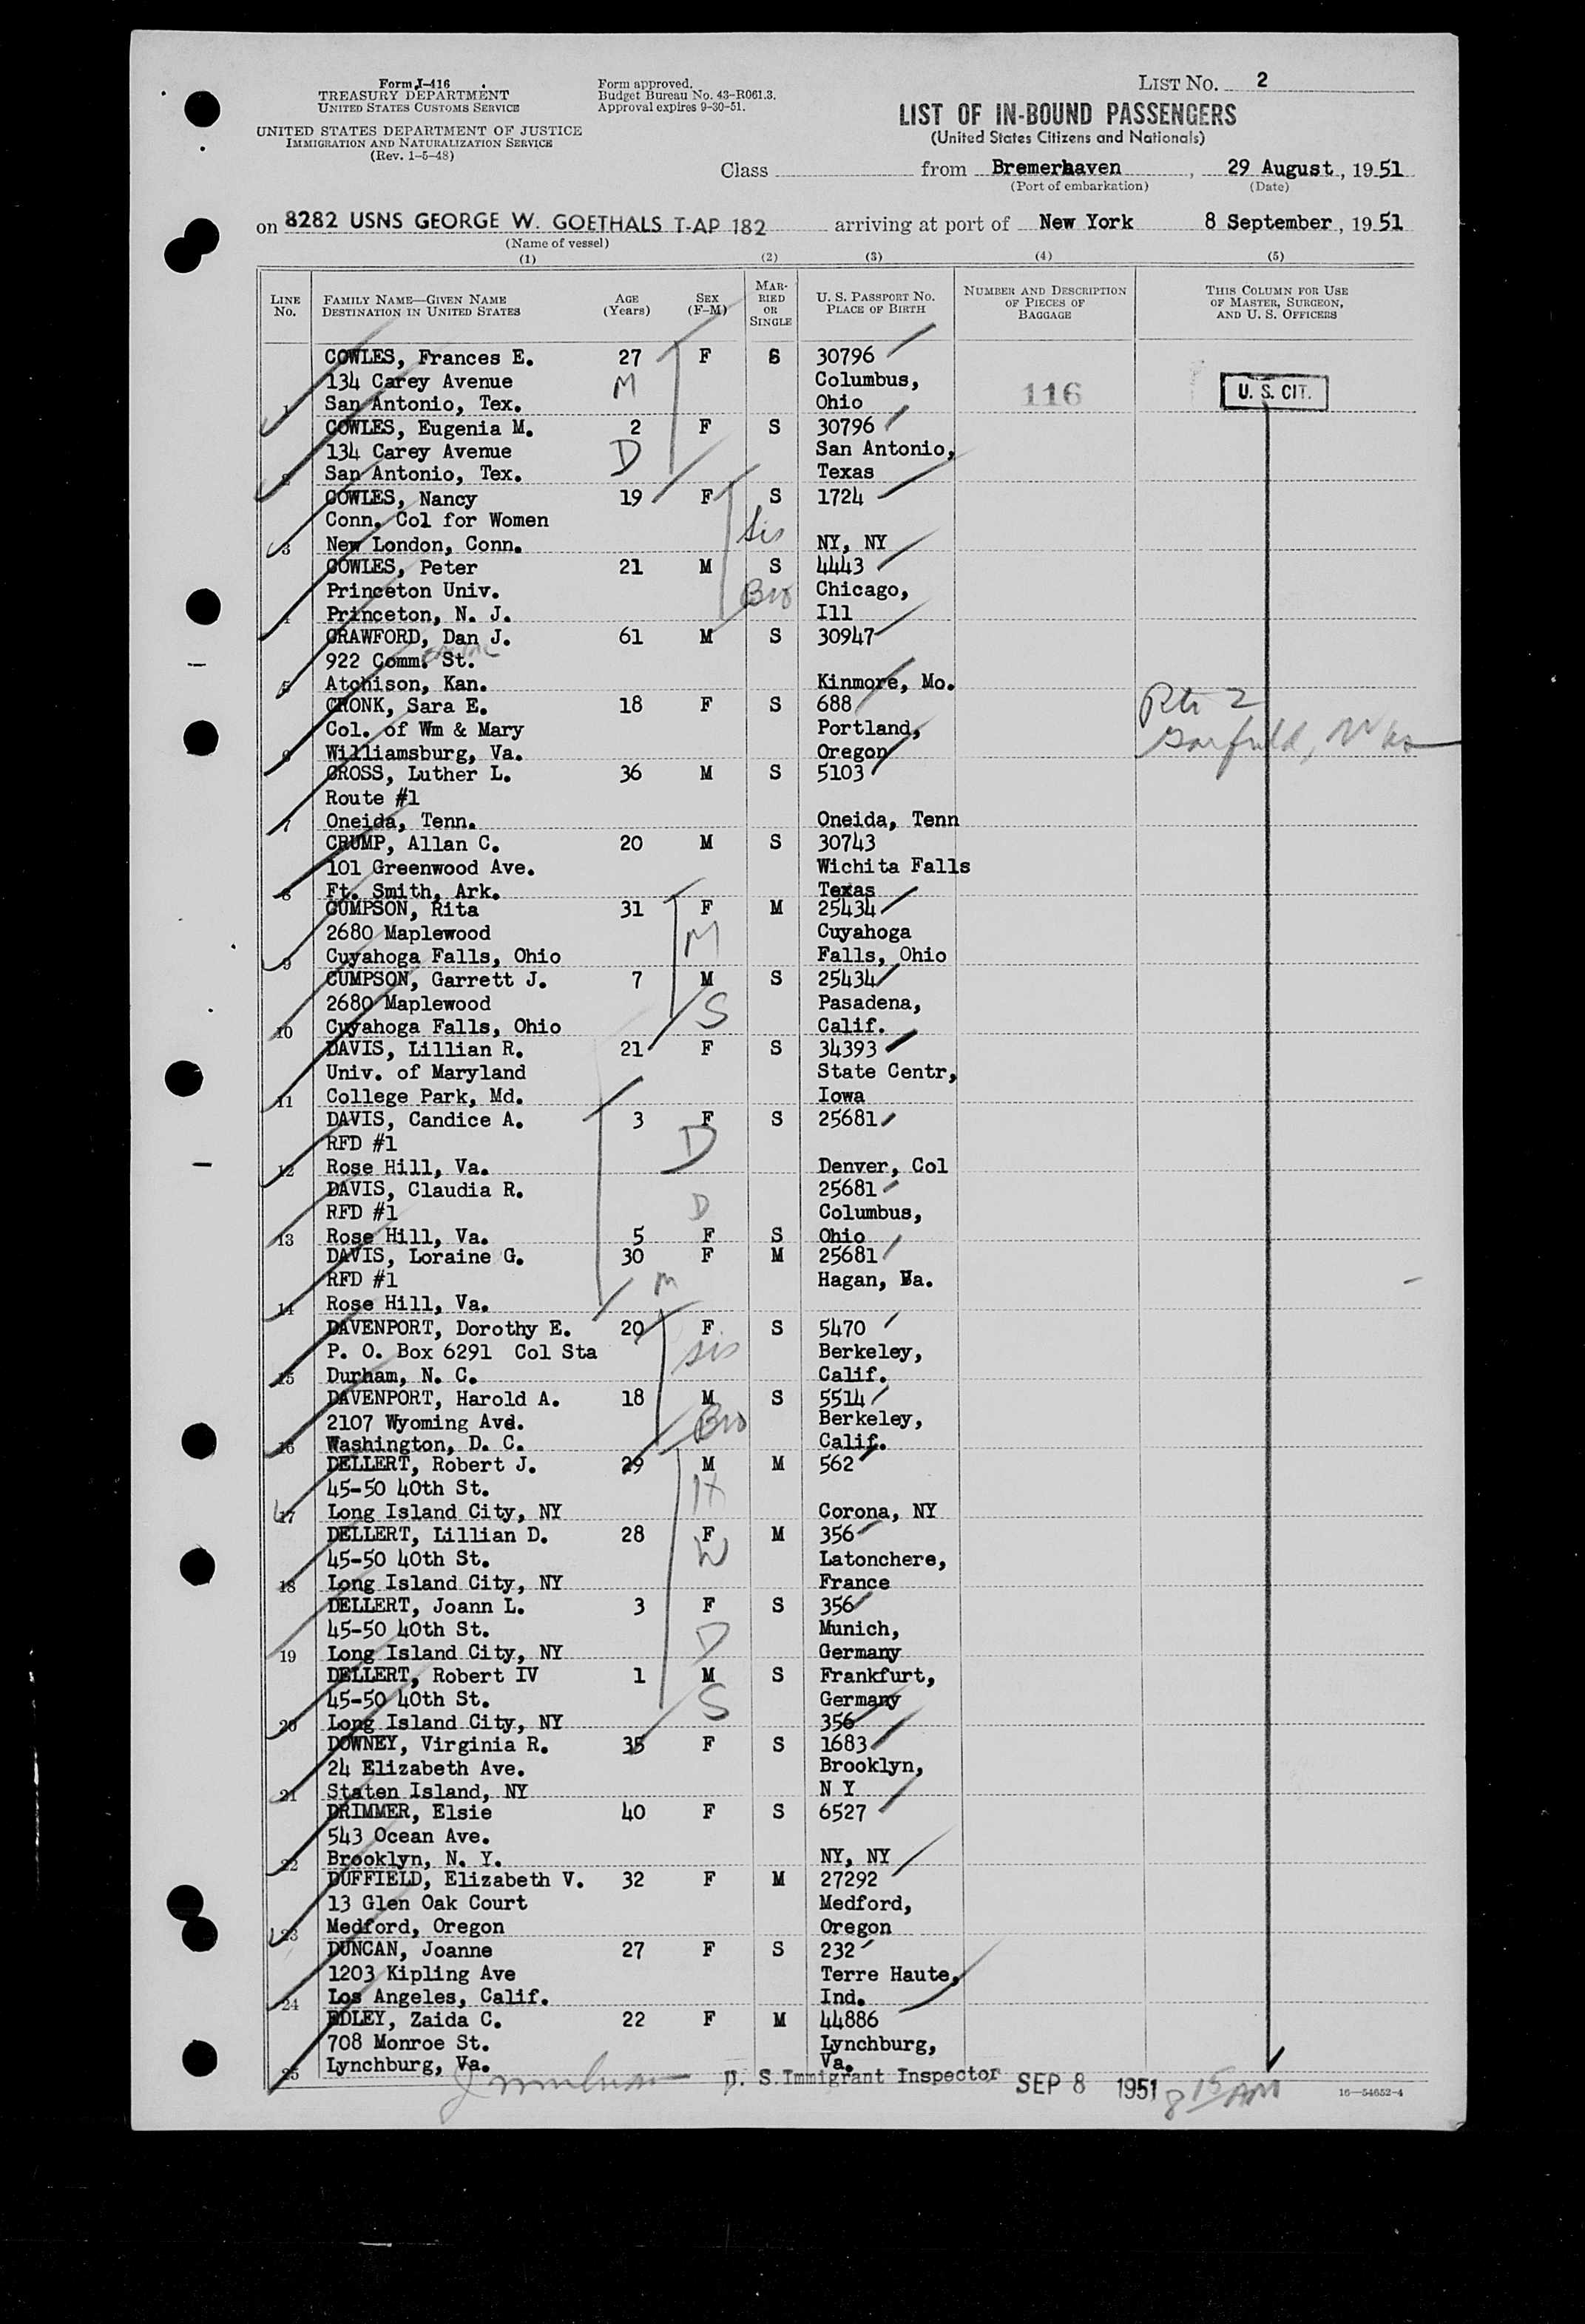 Form I-416
TREASURY DEPARTMENT
UNITED STATES CUSTOMS SERVICE
UNITED STATES DEPARTMENT OF JUSTICE
IMMIGRATION AND NATURALIZATION SERVICE
(Rev. 1-5-48)
Form approved.
Budget Bureau No. 43-R061.3.
Approval expires 9-30-51.
LIST No. 2
LIST OF IN-BOUND PASSENGERS
(United States Citizens and Nationals)
Class from Bremerhaven, 29 August, 1951
(Port of embarkation) (Date)
on 8282 USNS GEORGE W. GOETHALS T-AP 182 arriving at port of New York 8 September, 1951
(Name of vessel)
(1) (2) (3) (4) (5)
LINE No. FAMILY NAME—GIVEN NAME DESTINATION IN UNITED STATES AGE (Years) SEX (F-M) MARRIED OR SINGLE U. S. PASSPORT NO. PLACE OF BIRTH NUMBER AND DESCRIPTION OF PIECES OF BAGGAGE THIS COLUMN FOR USE OF MASTER, SURGEON, AND U. S. OFFICERS
COWLES, Frances E. 27 F S 30796
134 Carey Avenue M Columbus, 116 U. S. CIT.
1 San Antonio, Tex. Ohio
COWLES, Eugenia M. 2 F S 30796
134 Carey Avenue D San Antonio,
2 San Antonio, Tex. Texas
COWLES, Nancy 19 F S 1724
Conn. Col for Women Sis
3 New London, Conn. NY, NY
COWLES, Peter 21 M S 4443
Princeton Univ. Bro Chicago,
4 Princeton, N. J. Ill
CRAWFORD, Dan J. 61 M S 30947
922 Comm. St.
5 Atchison, Kan. Kinmore, Mo.
CRONK, Sara E. 18 F S 688 Rte 2
Col. of Wm & Mary Portland, Garfield,
6 Williamsburg, Va. Oregon
CROSS, Luther L. 36 M S 5103
Route #1
7 Oneida, Tenn. Oneida, Tenn
CRUMP, Allan C. 20 M S 30743
101 Greenwood Ave. Wichita Falls
8 Ft. Smith, Ark. Texas
CUMPSON, Rita 31 F M 25434
2680 Maplewood M Cuyahoga
9 Cuyahoga Falls, Ohio Falls, Ohio
CUMPSON, Garrett J. 7 M S 25434
2680 Maplewood S Pasadena,
10 Cuyahoga Falls, Ohio Calif.
DAVIS, Lillian R. 21 F S 34393
Univ. of Maryland State Centr,
11 College Park, Md. Iowa
DAVIS, Candice A. 3 F S 25681
RFD #1 D
12 Rose Hill, Va. Denver, Col
DAVIS, Claudia R. 25681
RFD #1 D Columbus,
13 Rose Hill, Va. 5 F S Ohio
DAVIS, Loraine G. 30 F M 25681
RFD #1 M Hagan, Va.
14 Rose Hill, Va.
DAVENPORT, Dorothy E. 20 F S 5470
P. O. Box 6291 Col Sta sis Berkeley,
15 Durham, N. C. Calif.
DAVENPORT, Harold A. 18 M S 5514
2107 Wyoming Ave. Bro Berkeley,
16 Washington, D. C. Calif.
DELLERT, Robert J. 29 M M 562
45-50 40th St. H
17 Long Island City, NY Corona, NY
DELLERT, Lillian D. 28 F M 356
45-50 40th St. W Latonchere,
18 Long Island City, NY France
DELLERT, Joann L. 3 F S 356
45-50 40th St. D Munich,
19 Long Island City, NY Germany
DELLERT, Robert IV 1 M S Frankfurt,
45-50 40th St. S Germany
20 Long Island City, NY 356
DOWNEY, Virginia R. 35 F S 1683
24 Elizabeth Ave. Brooklyn,
21 Staten Island, NY N Y
DRIMMER, Elsie 40 F S 6527
543 Ocean Ave.
22 Brooklyn, N. Y. NY, NY
DUFFIELD, Elizabeth V. 32 F M 27292
13 Glen Oak Court Medford,
23 Medford, Oregon Oregon
DUNCAN, Joanne 27 F S 232
1203 Kipling Ave Terre Haute,
24 Los Angeles, Calif. Ind.
EDLEY, Zaida C. 22 F M 44886
708 Monroe St. Lynchburg,
25 Lynchburg, Va. Va.
U. S. Immigrant Inspector SEP 8 1951 8 15 AM 16—54652-4